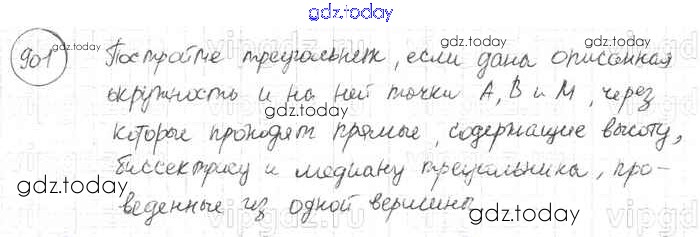 gdz.today
901 Постройте треугольник, если дана описанная
gdz.today
gdz.today
окружность и на ней точки A, B и M, через
gdz.today
которые проходят прямые, содержащие высоту,
биссектрису и медиану треугольника, про-
gdz.today
gdz.today
веденные из одной вершины
gdz.today